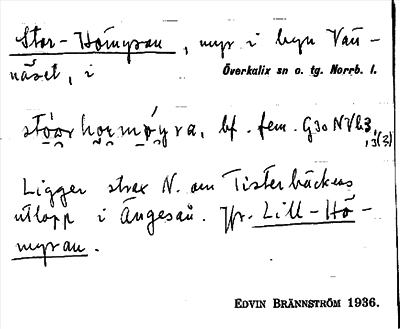 Stor-Hömyran, myr i byn Vän-
näset, i Överkalix sn o. tg. Norrb. l.
bf. fem.
Ligger strax N. om Tisterbäckens
utlopp i Ängesån. Jfr. Lill-Hö-
myran.
EDVIN BRÄNNSTRÖM 1936.